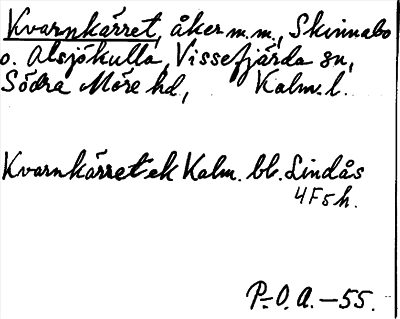 Kvarnkärret, åker m.m., Skinnabo
o. Alsjökulla, Vissefjärda sn,
Södra Möre hd, Kalm. l.
Kvarnkärret ek Kalm. bl. Lindås
4F5h.
P.-O. A. -55.